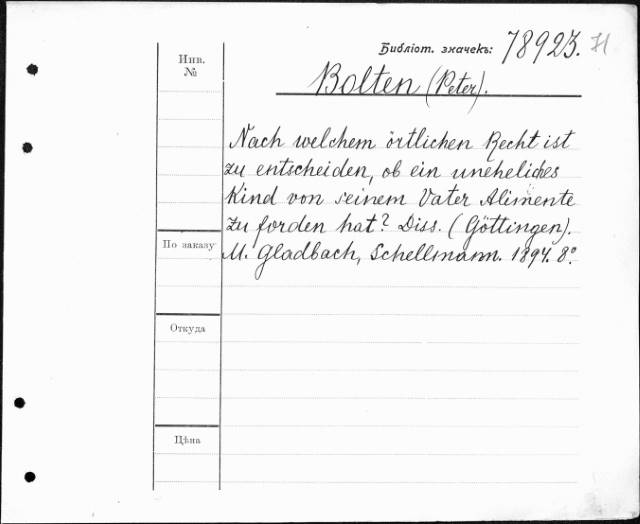 Библіот. значекъ: 78923.
Инв.
№
Bolten (Peter).
Nach welchem örtlichen Recht ist
zu entscheiden, ob ein uneheliches
Kind von seinem Vater Alimente
zu forden hat? Diss. (Göttingen).
По заказу
M. Gladbach, Schellmann. 1894. 8º.
Откуда
Цѣна